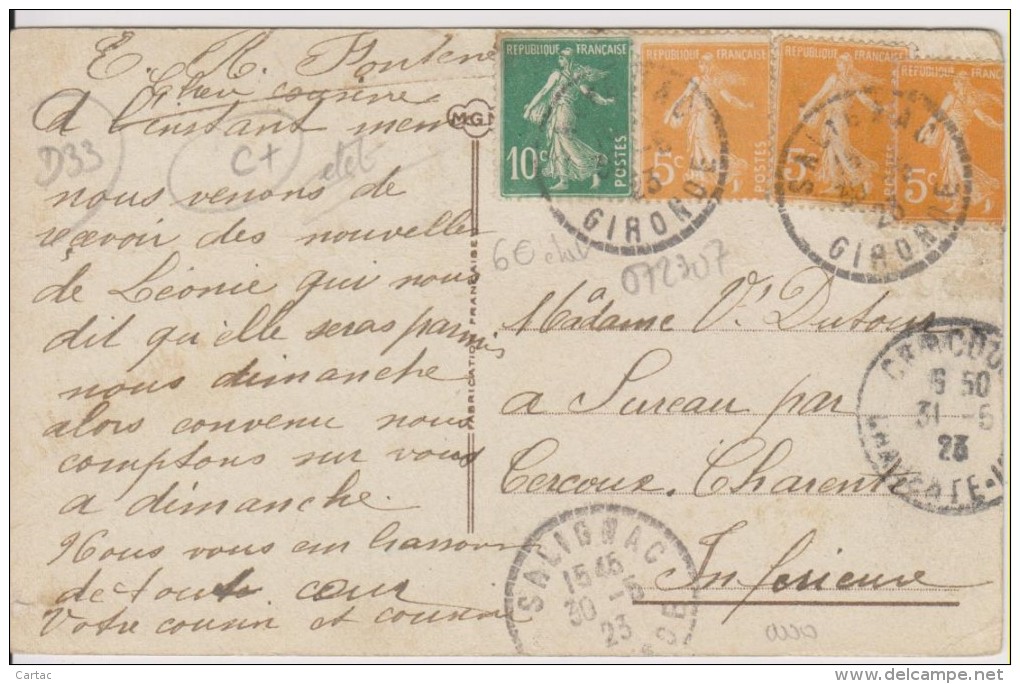 E. R. Fontene
Cher cousine
A l'instant meme
nous venons de
reçevoir des nouvelles
de Léonie qui nous
dit qu'elle seras parmis
nous dimanche
alors convenu nous
comptons sur vous
a dimanche.
Nous vous embrassons
de tout cœur
Votre cousin et cousine
D33
C+
etet
MGN
FABRICATION FRANÇAISE
REPUBLIQUE FRANÇAISE
10c
POSTES
REPUBLIQUE FRANÇAISE
5c
POSTES
REPUBLIQUE FRANÇAISE
5c
POSTES
REPUBLIQUE FRANÇAISE
5c
GIRONDE
SALIGNAC
23
GIRONDE
6€
072707
Madame Ve Dutour
a Sureau par
Cercoux. Charente
Inférieure
CERCOUX
6 50
31 -5
23
CHARENTE-INF
SALIGNAC
15 45
30 -5
23
Cartac
delcampe.net